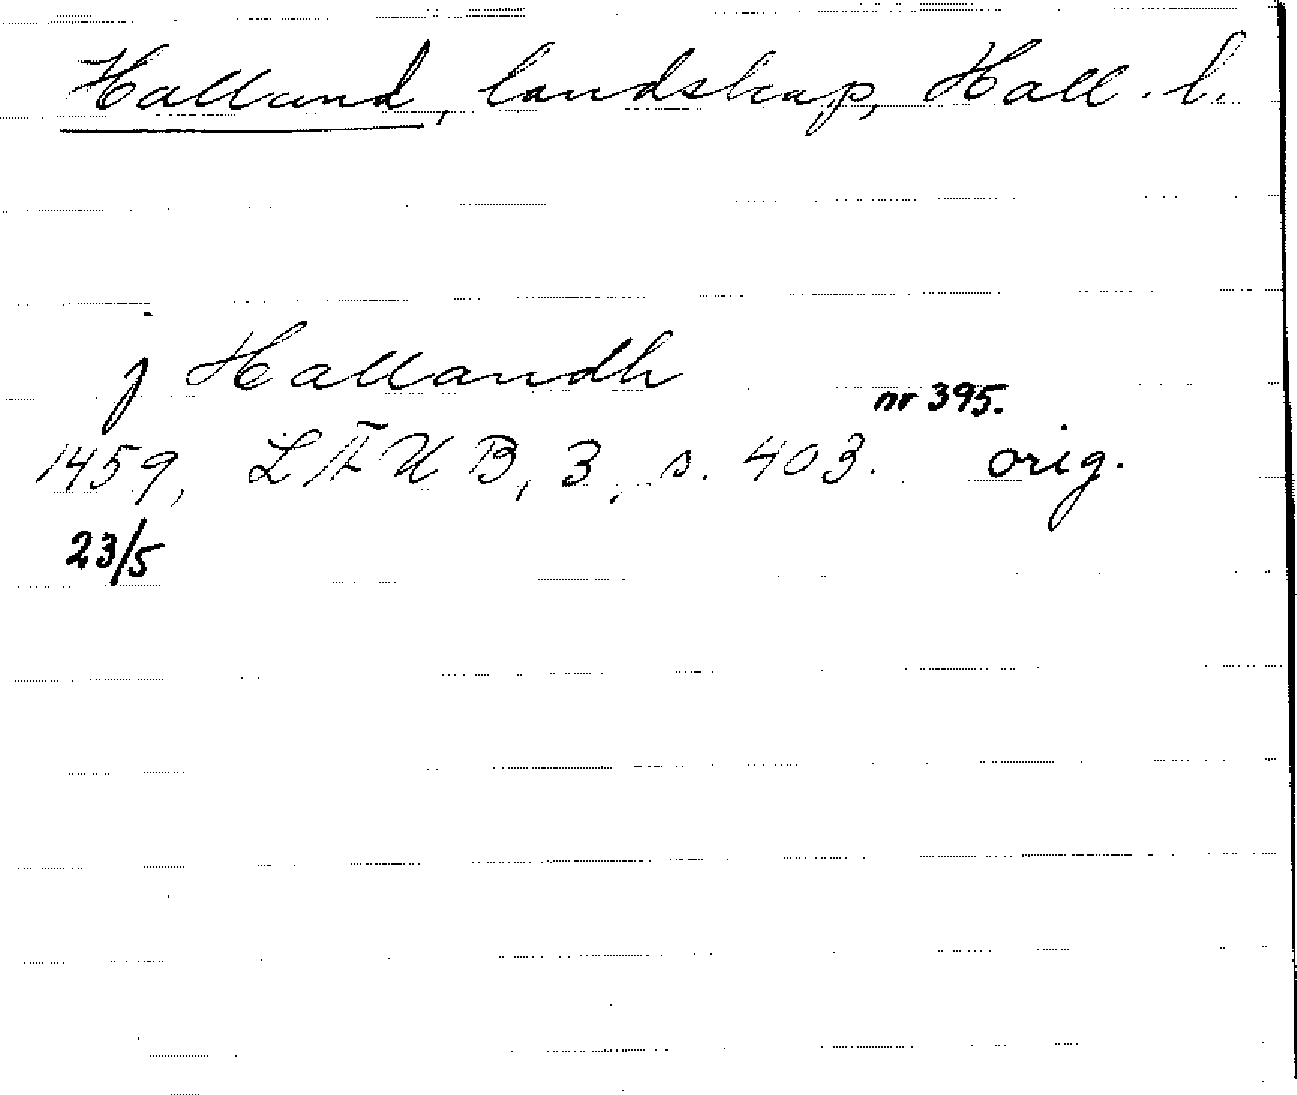 Halland, landskap, Hall. l.
j Hallandh
nr 395.
1459, LÄUB, 3, s. 403. orig.
23/5